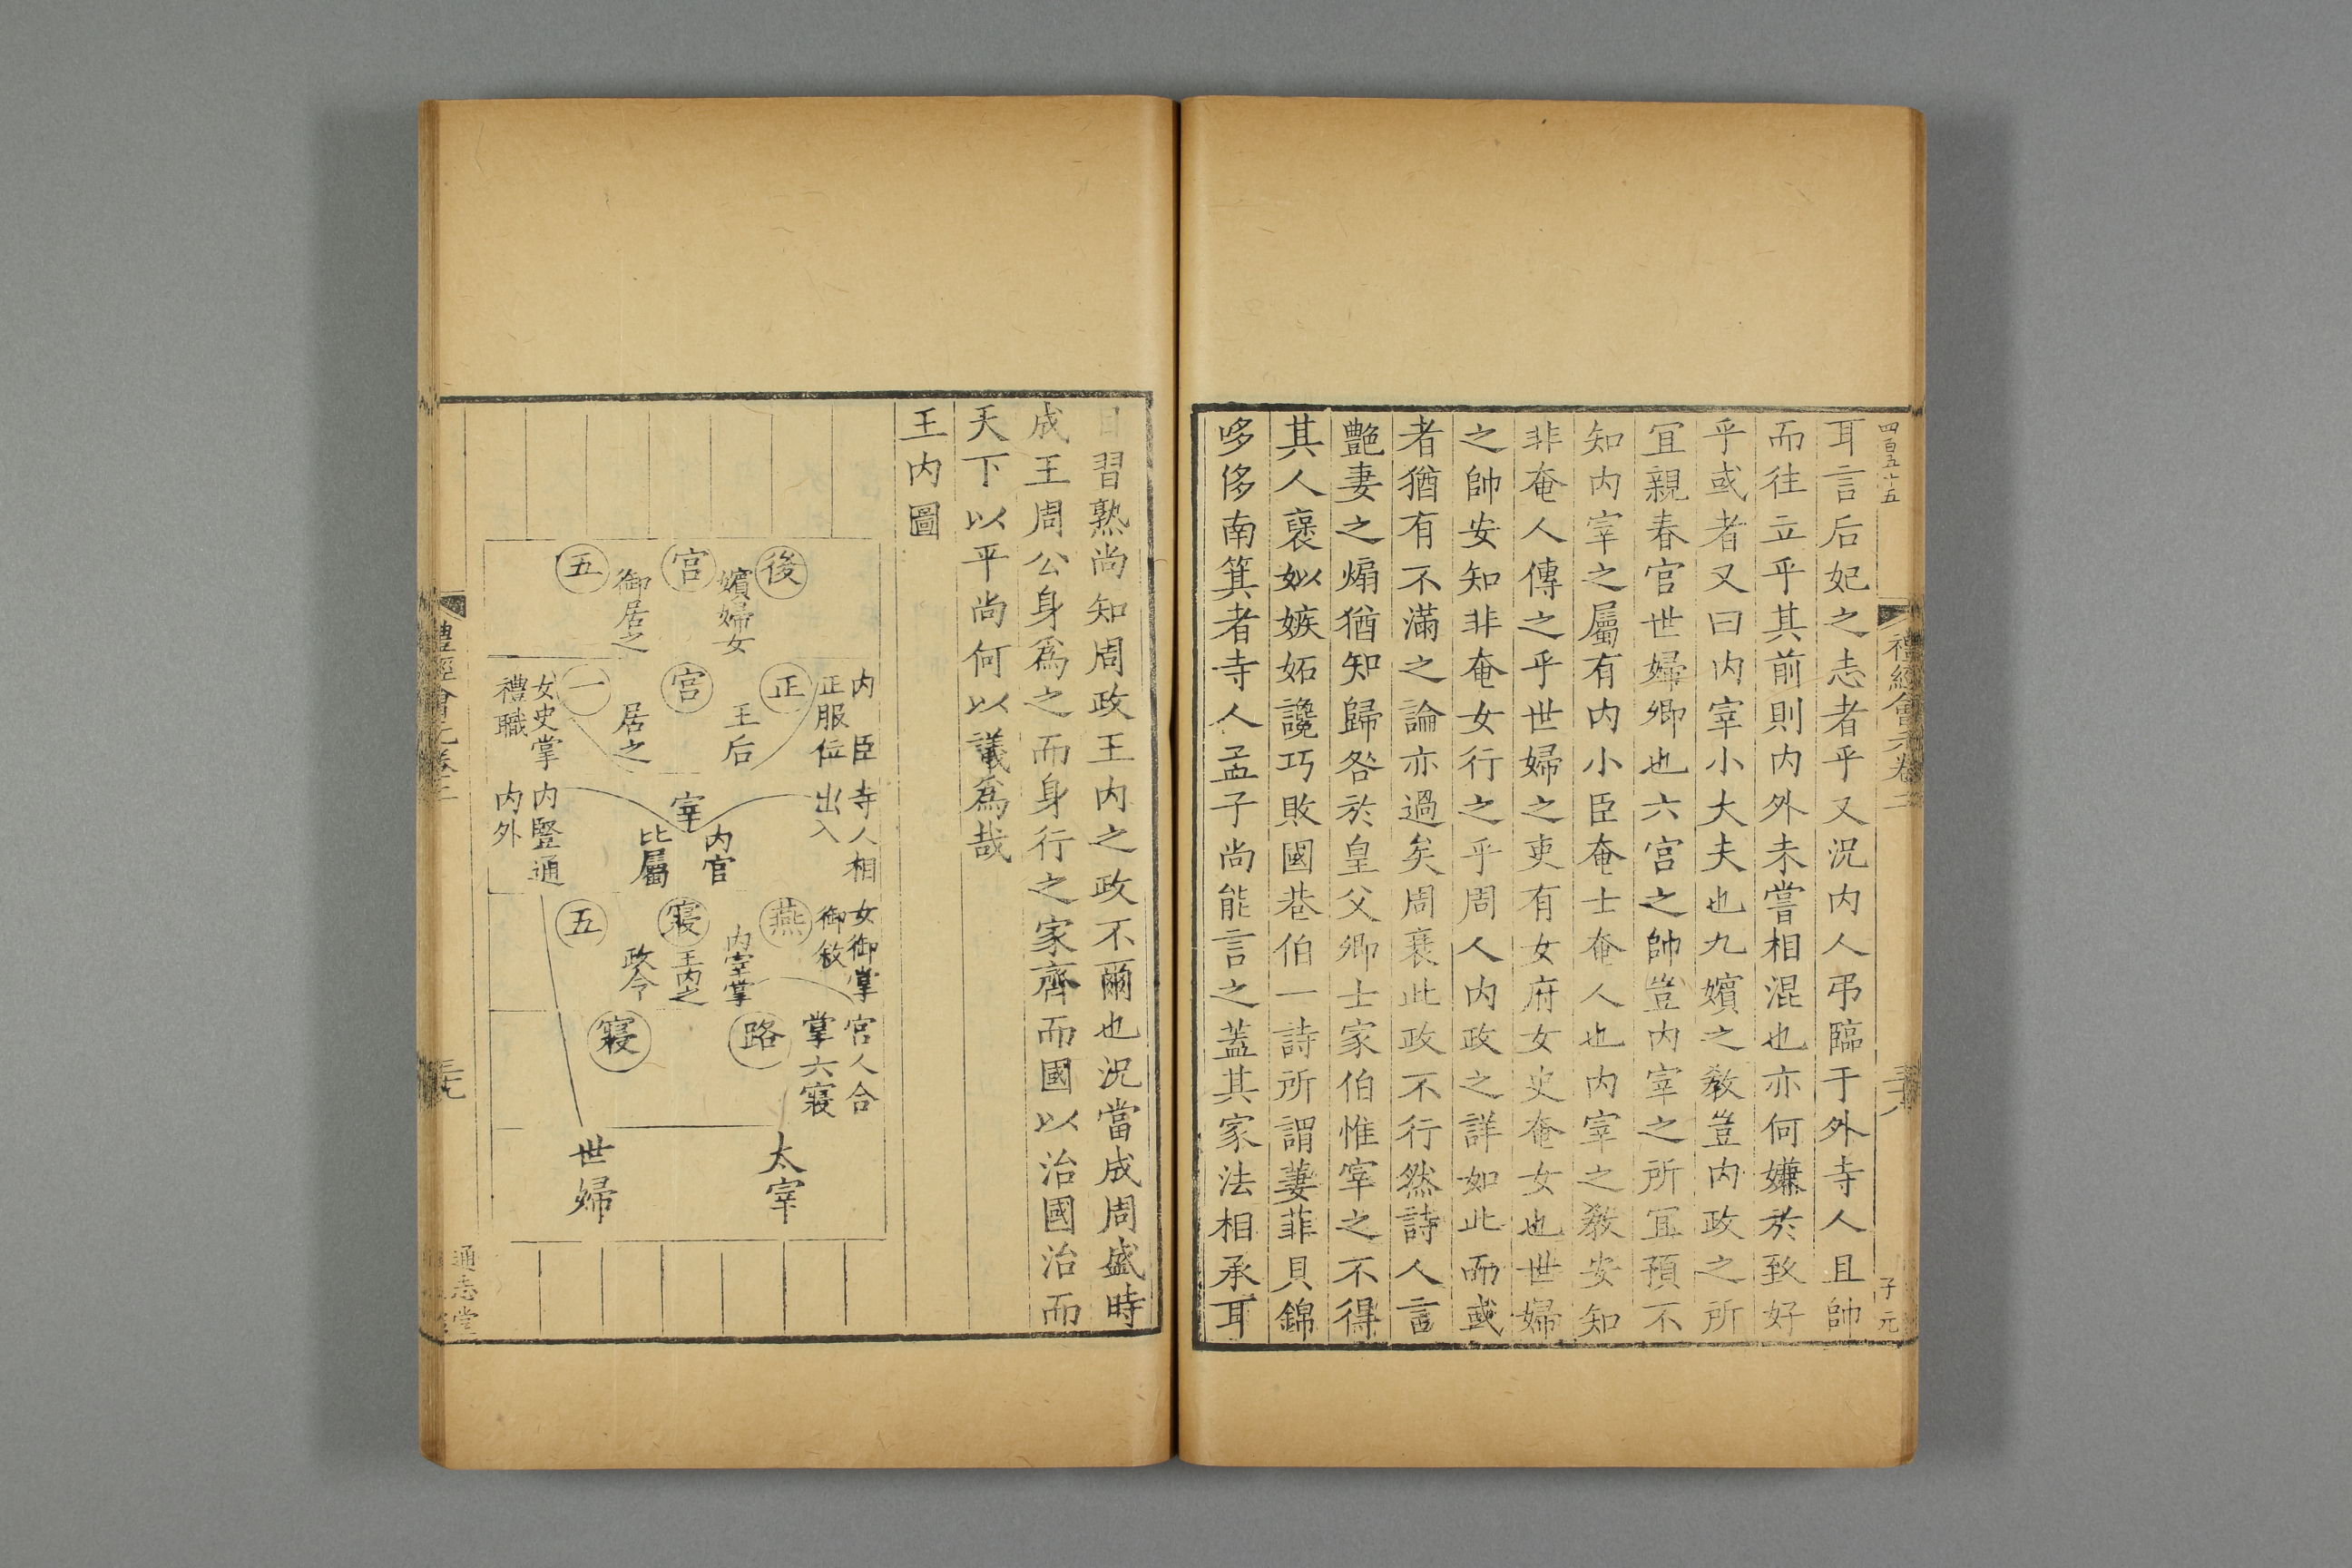 四百五十五
禮經會元卷二
三十八
子元
耳言后妃之志者乎又況内人弔臨于外寺人且帥
而往立乎其前則内外未嘗相混也亦何嫌於致好
乎或者又曰内宰小大夫也九嬪之教豈内政之所
宜親春官世婦卿也六宮之帥豈内宰之所宜預不
知内宰之屬有内小臣奄士奄人也内宰之教安知
非奄人傳之乎世婦之吏有女府女史奄女也世婦
之帥安知非奄女行之乎周人内政之詳如此而或
者猶有不滿之論亦過矣周衰此政不行然詩人言
艷妻之煽猶知歸咎於皇父卿士家伯惟宰之不得
其人褒姒嫉妬讒巧敗國巷伯一詩所謂萋菲貝錦
哆侈南箕者寺人孟子尚能言之蓋其家法相承耳
目習熟尚知周政王内之政不爾也況當成周盛時
成王周公身爲之而身行之家齊而國以治國治而
天下以平尚何以議爲哉
王内圖
後
嬪婦女
宮
御居之
五
内臣
正服位
正
王后
宮
居之
一
女史掌
禮職
寺人相
出入
内官
宰
比屬
内豎通
内外
女御掌
御敘
燕
内宰掌
寢
王内之
政令
五
宮人合
掌六寢
路
寢
太宰
世婦
禮經會元卷二
三十九
通志堂